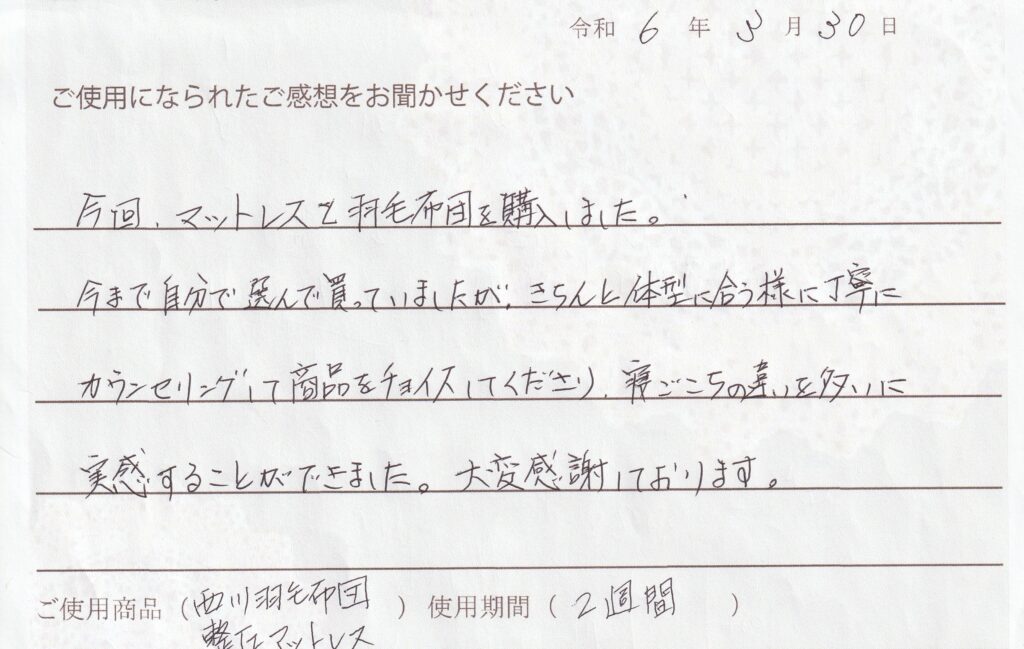 令和 6 年 3 月 30 日
ご使用になられたご感想をお聞かせください
今回、マットレスと羽毛布団を購入しました。
今まで自分で選んで買っていましたが、きちんと体型に合う様に丁寧に
カウンセリングして商品をチョイスしてくださり、寝ごこちの違いを多いに
実感することができました。大変感謝しております。
ご使用商品（西川羽毛布団　）使用期間（ 2週間　）
整圧マットレス